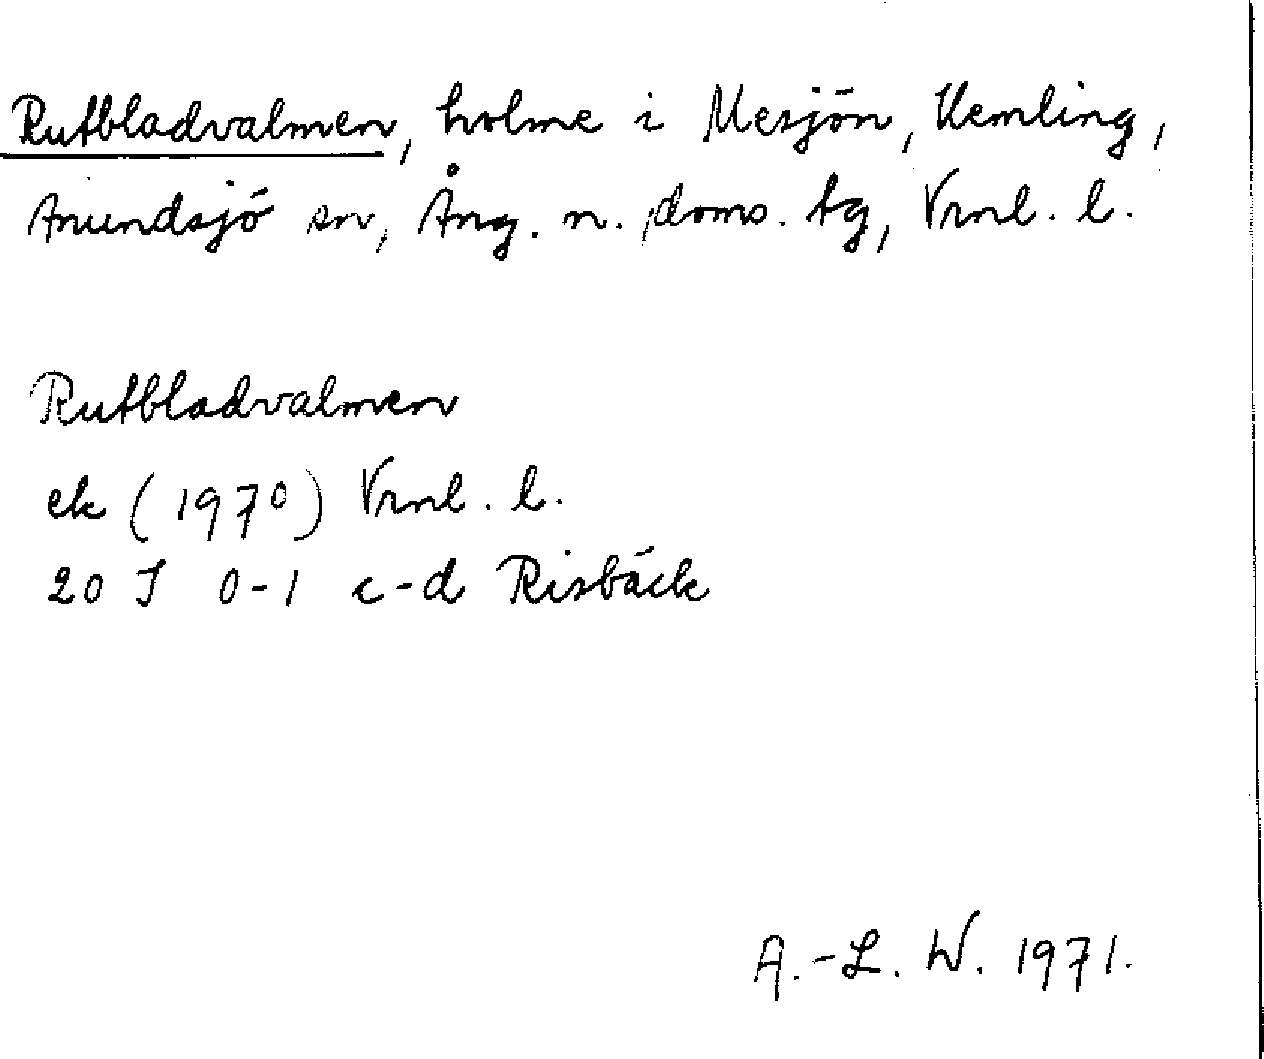 Rutbladvalmen, holme i Mesjön, Kemling,
Anundsjö sn, Ång. n. doms. tg, Vrnl. l.
Rutbladvalmen
ek (1970) Vrnl. l.
20 J 0-1 c-d Risbäck
A.-L. W. 1971.